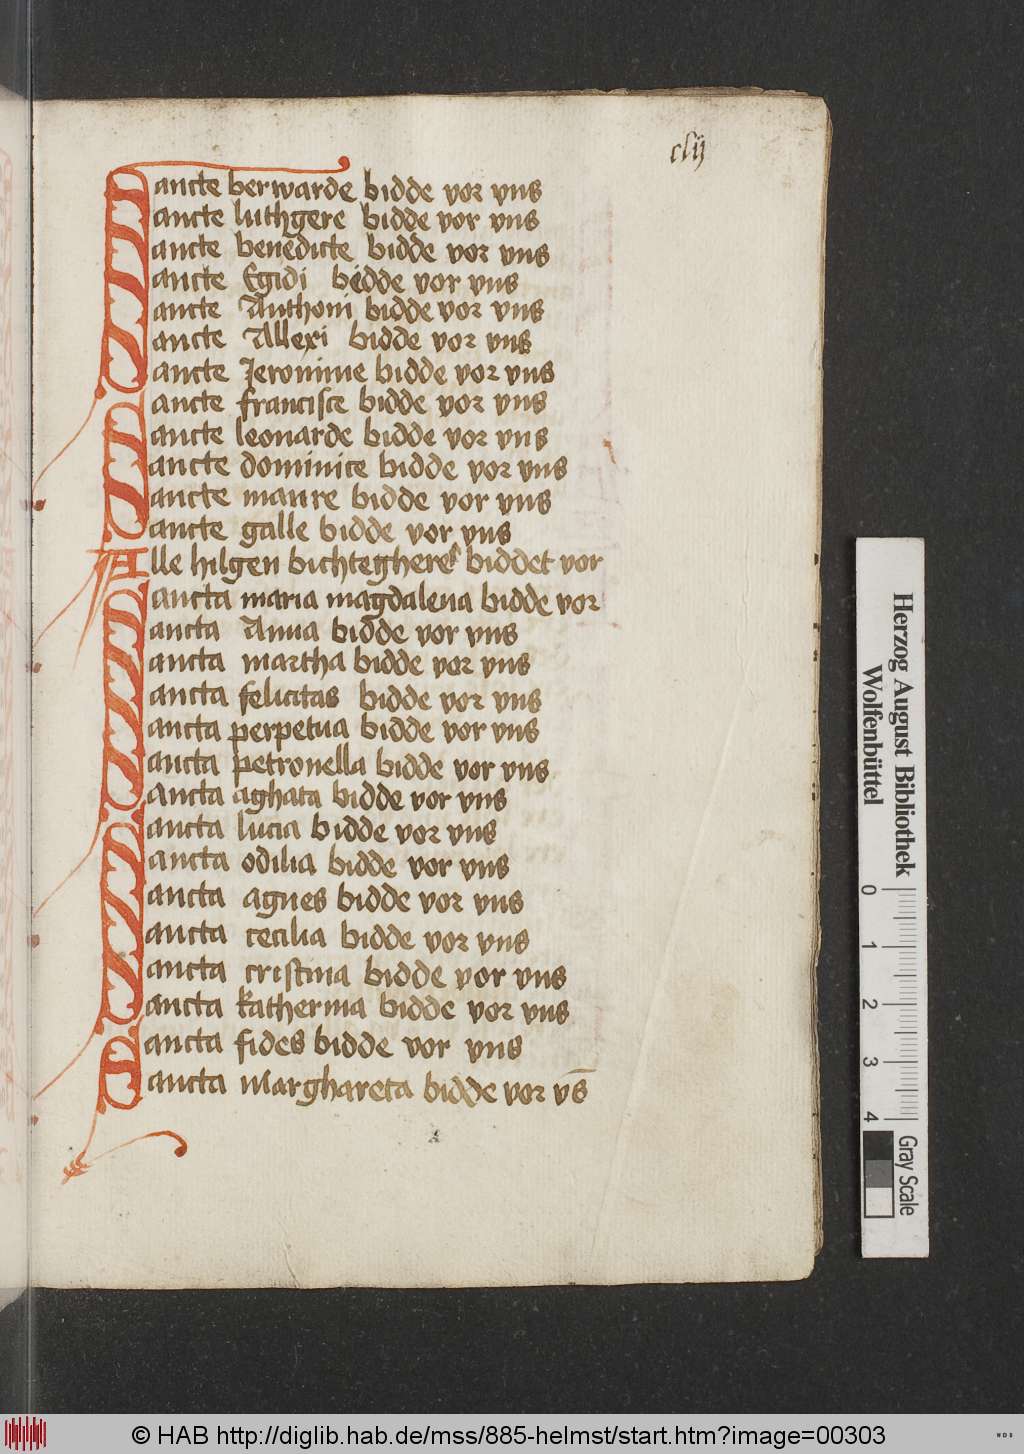 clij
Sancte berwarde bidde vor vns
Sancte luthgere bidde vor vns
Sancte benedicte bidde vor vns
Sancte Egidi bidde vor vns
Sancte Anthoni bidde vor vns
Sancte Allexi bidde vor vns
Sancte Jeronime bidde vor vns
Sancte francisce bidde vor vns
Sancte leonarde bidde vor vns
Sancte dominice bidde vor vns
Sancte maure bidde vor vns
Sancte galle bidde vor vns
Alle hilgen bichtegheres biddet vor
Sancta maria magdalena bidde vor
Sancta Anna bidde vor vns
Sancta martha bidde vor vns
Sancta felicitas bidde vor vns
Sancta perpetua bidde vor vns
Sancta petronella bidde vor vns
Sancta aghata bidde vor vns
Sancta lucia bidde vor vns
Sancta odilia bidde vor vns
Sancta agnes bidde vor vns
Sancta cecilia bidde vor vns
Sancta cristina bidde vor vns
Sancta katherina bidde vor vns
Sancta fides bidde vor vns
Sancta marghareta bidde vor vs̄
Herzog August Bibliothek
Wolfenbüttel
0 1 2 3 4
Gray Scale
© HAB http://diglib.hab.de/mss/885-helmst/start.htm?image=00303
WDB